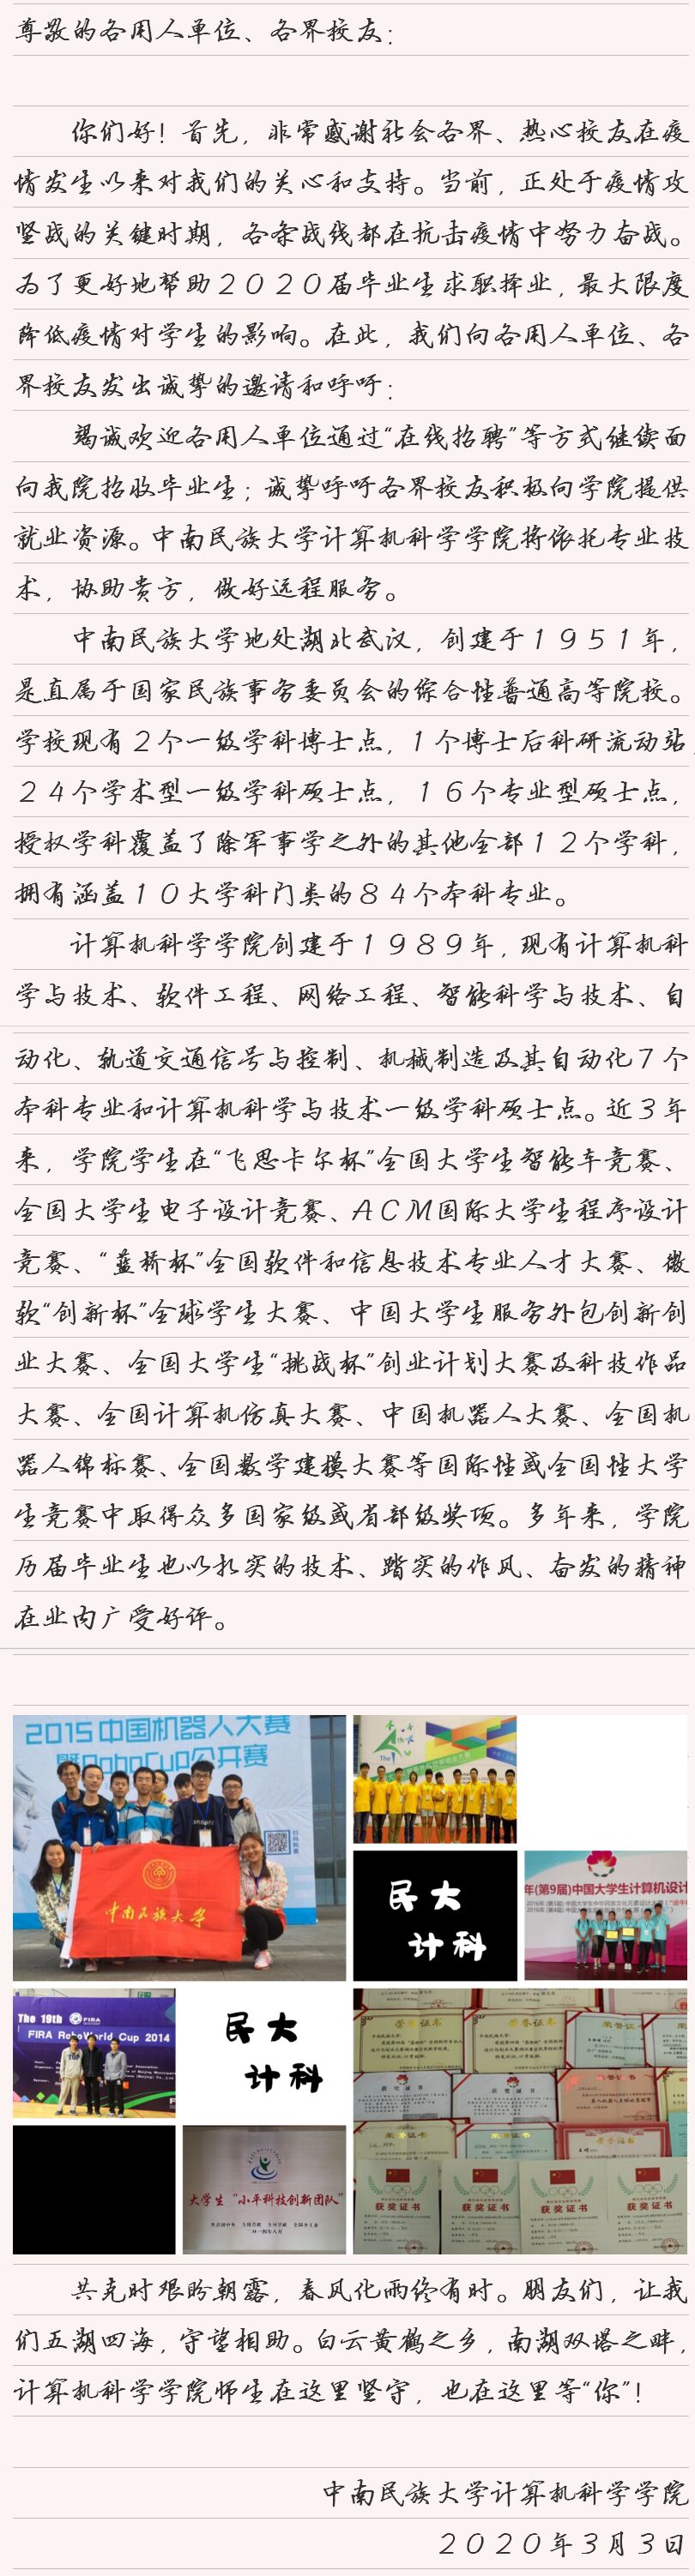 尊敬的各用人单位、各界校友：
你们好！首先，非常感谢社会各界、热心校友在疫
情发生以来对我们的关心和支持。当前，正处于疫情攻
坚战的关键时期，各条战线都在抗击疫情中努力奋战。
为了更好地帮助2020届毕业生求职择业，最大限度
降低疫情对学生的影响。在此，我们向各用人单位、各
界校友发出诚挚的邀请和呼吁：
竭诚欢迎各用人单位通过“在线招聘”等方式继续面
向我院招收毕业生；诚挚呼吁各界校友积极向学院提供
就业资源。中南民族大学计算机科学学院将依托专业技
术，协助贵方，做好远程服务。
中南民族大学地处湖北武汉，创建于1951年，
是直属于国家民族事务委员会的综合性普通高等院校。
学校现有2个一级学科博士点，1个博士后科研流动站，
24个学术型一级学科硕士点，16个专业型硕士点，
授权学科覆盖了除军事学之外的其他全部12个学科，
拥有涵盖10大学科门类的84个本科专业。
计算机科学学院创建于1989年，现有计算机科
学与技术、软件工程、网络工程、智能科学与技术、自
动化、轨道交通信号与控制、机械制造及其自动化7个
本科专业和计算机科学与技术一级学科硕士点。近3年
来，学院学生在“飞思卡尔杯”全国大学生智能车竞赛、
全国大学生电子设计竞赛、ACM国际大学生程序设计
竞赛、“蓝桥杯”全国软件和信息技术专业人才大赛、微
软“创新杯”全球学生大赛、中国大学生服务外包创新创
业大赛、全国大学生“挑战杯”创业计划大赛及科技作品
大赛、全国计算机仿真大赛、中国机器人大赛、全国机
器人锦标赛、全国数学建模大赛等国际性或全国性大学
生竞赛中取得众多国家级或省部级奖项。多年来，学院
历届毕业生也以扎实的技术、踏实的作风、奋发的精神
在业内广受好评。
2015中国机器人大赛
暨RoboCup公开赛
中南民族大学
The
民大
计科
年(第9届)中国大学生计算机设计
The 19th FIRA
FIRA RoboWorld Cup 2014
民大
计科
大学生“小平科技创新团队”
荣誉证书
荣誉证书
获奖证书
获奖证书
荣誉证书
获奖证书
获奖证书
获奖证书
获奖证书
共克时艰盼朝露，春风化雨终有时。朋友们，让我
们五湖四海，守望相助。白云黄鹤之乡，南湖双塔之畔，
计算机科学学院师生在这里坚守，也在这里等“你”！
中南民族大学计算机科学学院
2020年3月3日